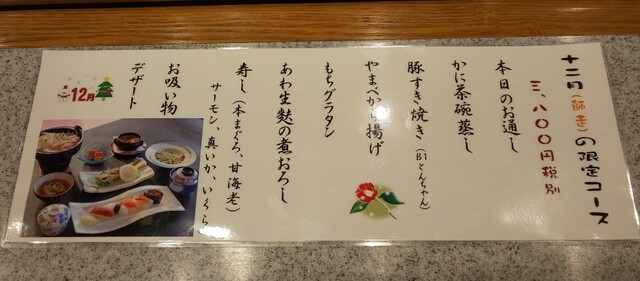 十二月（師走）の限定コース
三、八〇〇円税別
本日のお通し
かに茶碗蒸し
豚すき焼き（B1とんちゃん）
やまべから揚げ
もちグラタン
あわ生麩の煮おろし
寿し（本まぐろ、甘海老）
サーモン、真いか、いくら
お吸い物
デザート
12月